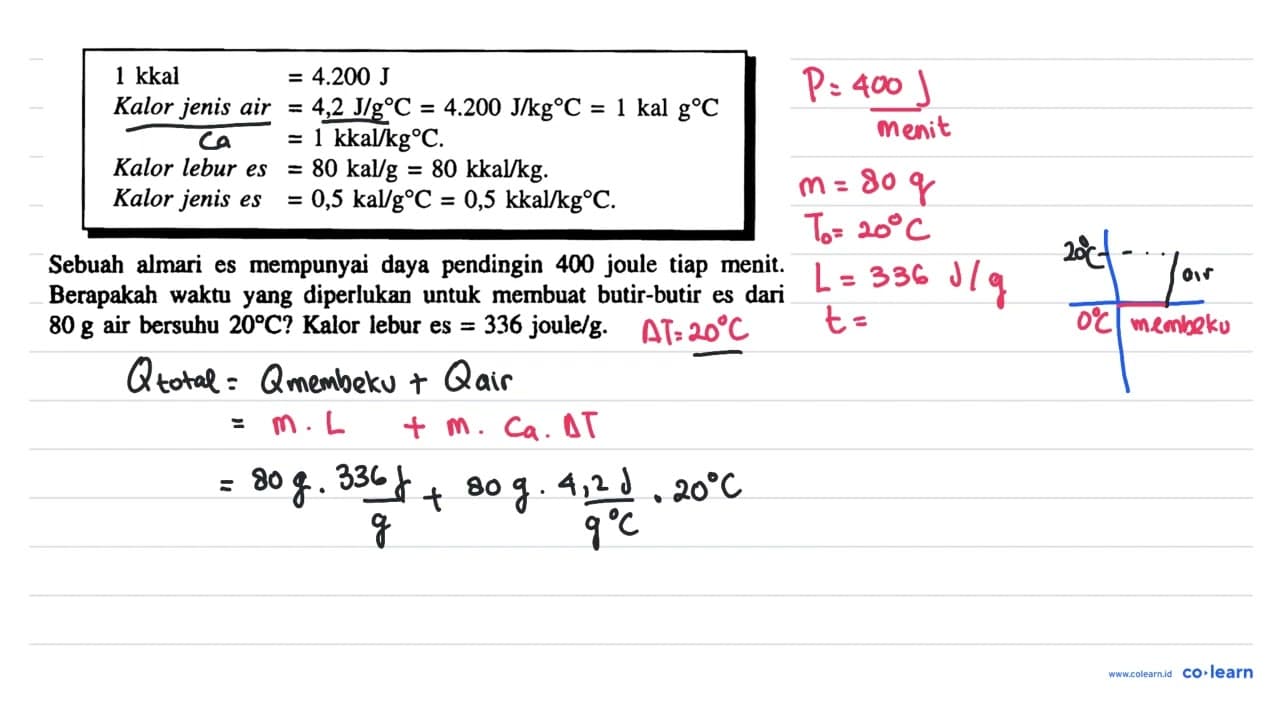 1 kkal = 4.200 J
Kalor jenis air = 4,2 J/g°C = 4.200 J/kg°C = 1 kal g°C
Ca = 1 kkal/kg°C.
Kalor lebur es = 80 kal/g = 80 kkal/kg.
Kalor jenis es = 0,5 kal/g°C = 0,5 kkal/kg°C.
Sebuah almari es mempunyai daya pendingin 400 joule tiap menit.
Berapakah waktu yang diperlukan untuk membuat butir-butir es dari
80 g air bersuhu 20°C? Kalor lebur es = 336 joule/g.
ΔT = 20°C
P = 400 J
menit
m = 80 g
T₀ = 20°C
L = 336 J/g
t =
20°C
air
0°C membeku
Q total = Q membeku + Q air
= m . L + m . Ca . ΔT
= 80 g . 336 J/g + 80 g . 4,2 J/g°C . 20°C
www.colearn.id co·learn